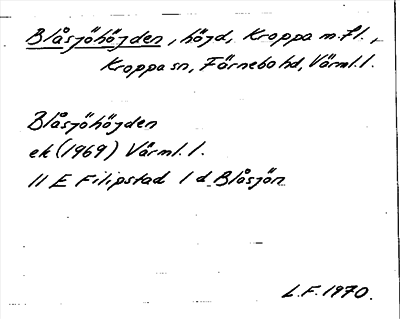 Blåsjöhöjden, höjd, Kroppa m.fl.,
Kroppa sn, Färnebo hd, Värml. l.
Blåsjöhöjden
ek (1969) Värml. l.
11 E Filipstad 1 d Blåsjön
L.F. 1970.